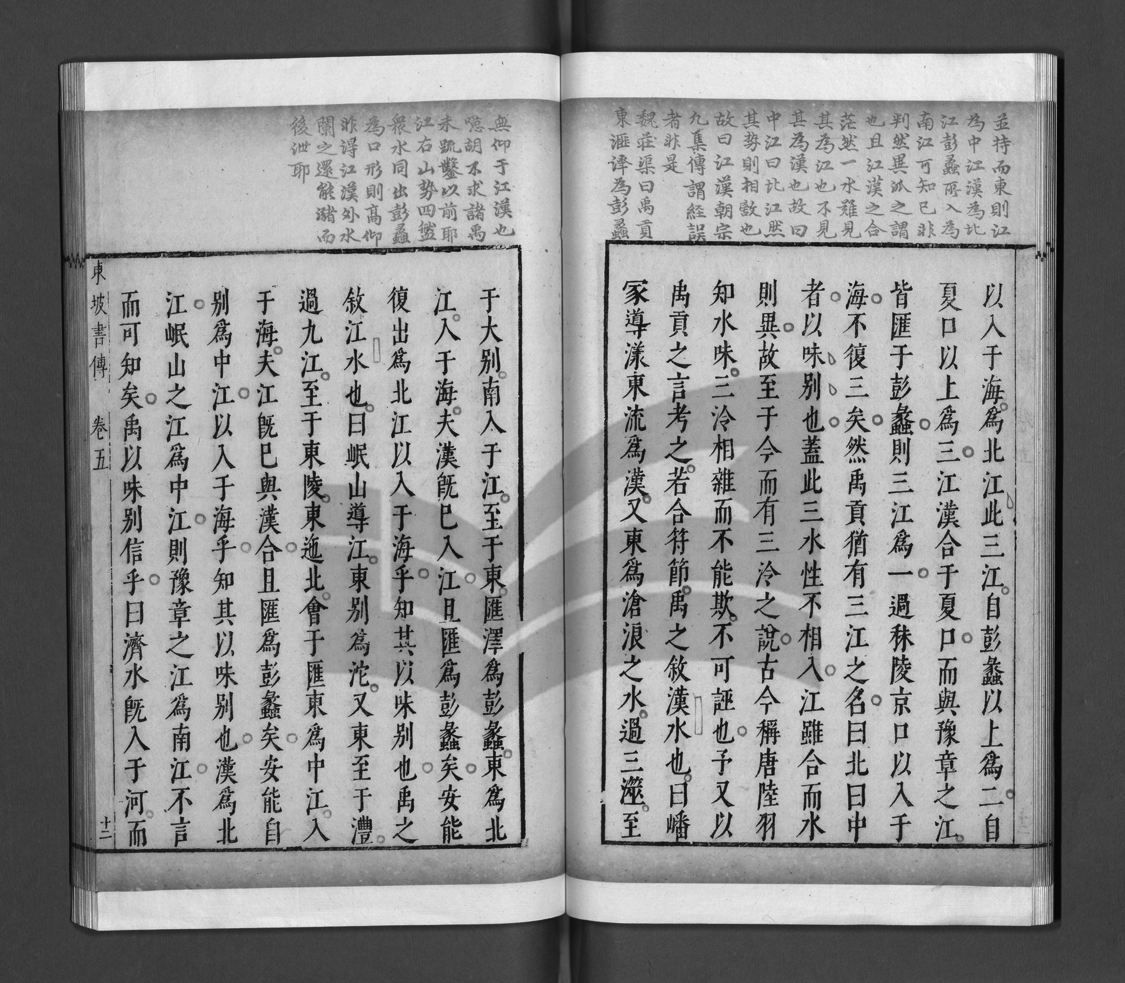 並持而東則江
為中江漢為北
江彭蠡所入為
南江可知已非
判然異派之謂
也且江漢之合
茫然一水雖見
其為江也不見
其為漢也故曰
中江曰北江然
其勢則相敵也
故曰江漢朝宗
九集傳謂經誤
者非是
魏莊渠曰禹貢
東滙澤為彭蠡
以入于海爲北江此三江自彭蠡以上爲二自
夏口以上爲三江漢合于夏口而與豫章之江
皆匯于彭蠡則三江爲一過秣陵京口以入于
海不復三矣然禹貢猶有三江之名曰北曰中
者以味别也蓋此三水性不相入江雖合而水
則異故至于今而有三泠之說古今稱唐陸羽
知水味三泠相雜而不能欺不可誣也予又以
禹貢之言考之若合符節禹之敘漢水也曰嶓
冢導漾東流爲漢又東爲滄浪之水過三澨至
無仰于江漢也
噫胡不求諸禹
未疏鑿以前耶
江右山勢四盤
衆水同出彭蠡
為口形則高仰
昨得江漢外水
闌之還能瀦而
後泄耶
于大别南入于江至于東匯澤爲彭蠡東爲北
江入于海夫漢既巳入江且匯爲彭蠡矣安能
復出爲北江以入于海乎知其以味别也禹之
敘江水也曰岷山導江東别爲沱又東至于澧
過九江至于東陵東迤北會于匯東爲中江入
于海夫江既巳與漢合且匯爲彭蠡矣安能自
别爲中江以入于海乎知其以味别也漢爲北
江岷山之江爲中江則豫章之江爲南江不言
而可知矣禹以味别信乎曰濟水既入于河而
東坡書傳 卷五 十二